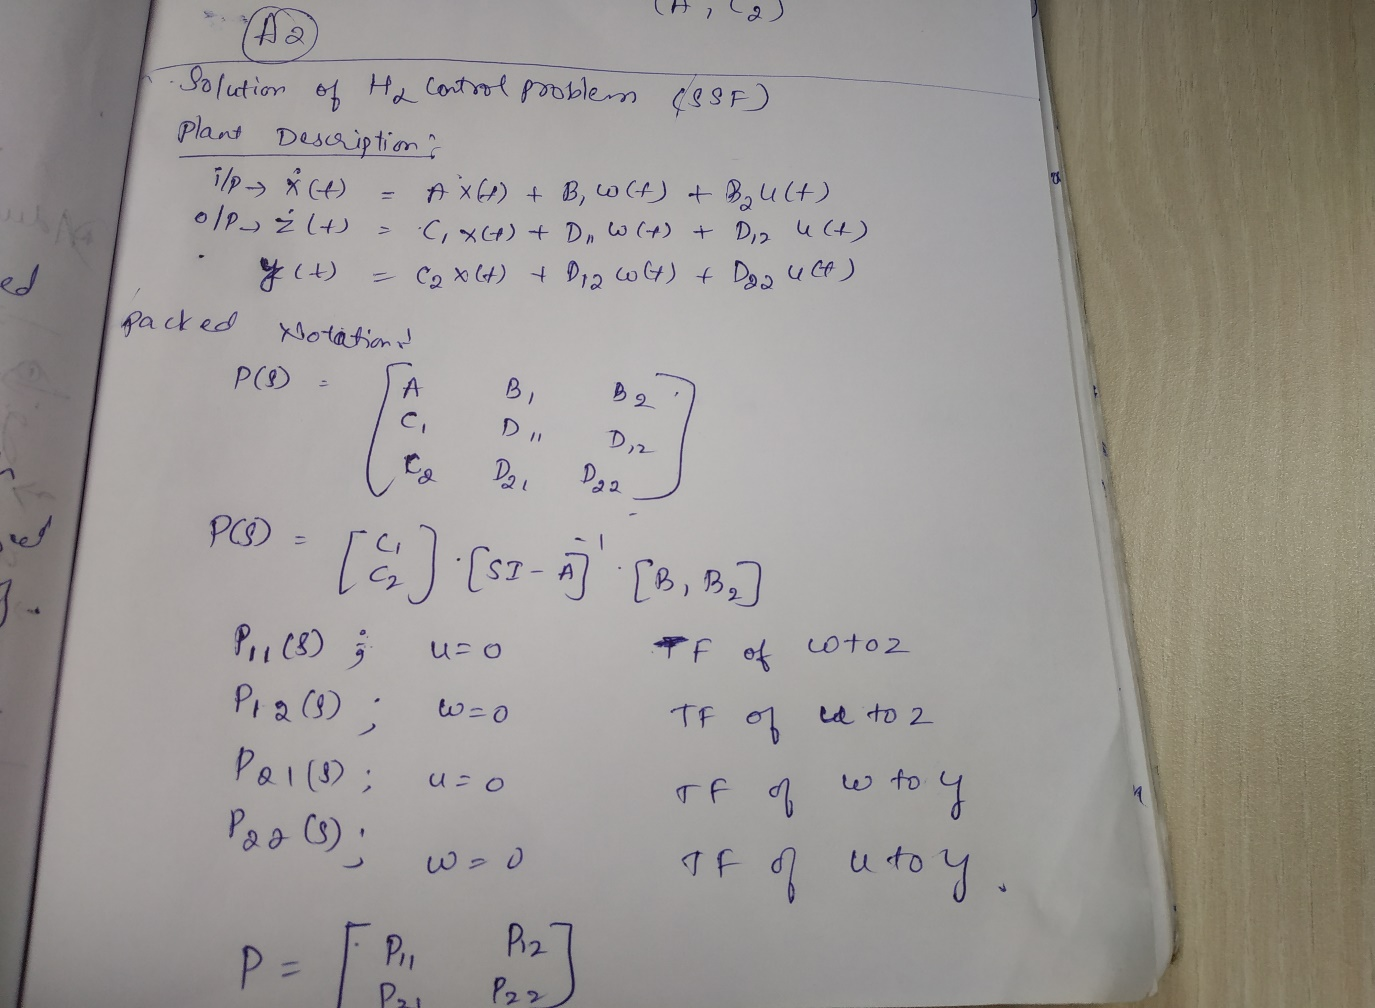 (A, C2)
A2
Solution of H2 Control problem (SSF)
Plant Description:
i/p → ẋ(t) = A x(t) + B1 w(t) + B2 u(t)
o/p → ż(t) = C1 x(t) + D11 w(t) + D12 u(t)
y(t) = C2 x(t) + D12 w(t) + D22 u(t)
packed Notation:
P(s) = [ A B1 B2
C1 D11 D12
C2 D21 D22 ]
P(s) = [ C1
C2 ] · [SI - A]⁻¹ · [B1 B2]
P11(s) ; u=0 TF of w to z
P12(s) ; w=0 TF of u to z
P21(s) ; u=0 TF of w to y
P22(s) ; w=0 TF of u to y.
P = [ P11 P12
P21 P22 ]